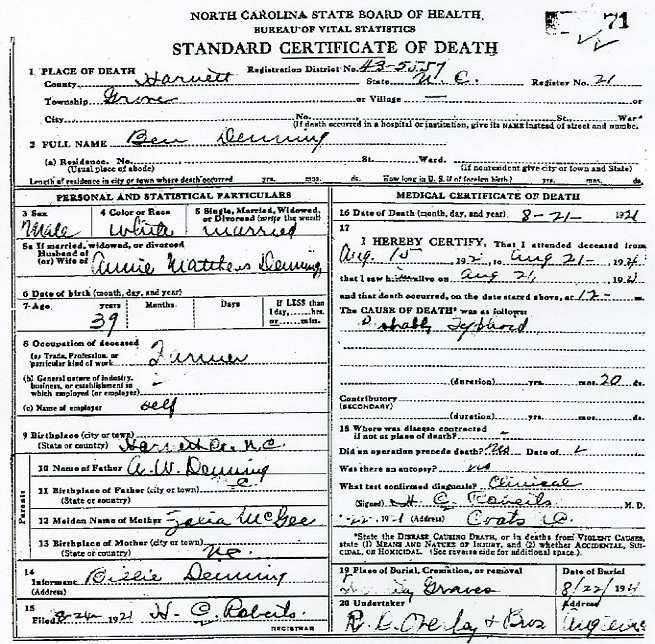 71
NORTH CAROLINA STATE BOARD OF HEALTH
BUREAU OF VITAL STATISTICS
STANDARD CERTIFICATE OF DEATH
1 PLACE OF DEATH Registration District No. 43-5557
County Harnett State N.C. Register No. 21
Township Grove or Village — or
City No. St. Ward
(If death occurred in a hospital or institution, give its NAME instead of street and numbe
2 FULL NAME Ben Denning
(a) Residence. No. St. Ward.
(Usual place of abode) (If nonresident give city or town and State)
Length of residence in city or town where death occurred yrs. mos. ds. How long in U. S. if of foreign birth? yrs. mos. ds.
PERSONAL AND STATISTICAL PARTICULARS
3 Sex 4 Color or Race 5 Single, Married, Widowed, or Divorced (write the word)
Male White married
5a If married, widowed, or divorced
Husband of
(or) Wife of Annie Matthews Denning
6 Date of birth (month, day, and year)
7 Age years Months Days If LESS than
1 day, hrs.
39 or min.
8 Occupation of deceased
(a) Trade, Profession, or
particular kind of work Farmer
(b) General nature of industry,
business, or establishment in
which employed (or employer) -
(c) Name of employer self
9 Birthplace (city or town)
(State or country) Harnett Co. N.C.
Parents
10 Name of Father A. W. Denning
11 Birthplace of Father (city or town)
(State or country)
12 Maiden Name of Mother McGee
13 Birthplace of Mother (city or town)
(State or country) N.C.
14
Informant Billie Denning
(Address)
15
Filed 1921 H. C. Roberts
REGISTRAR
MEDICAL CERTIFICATE OF DEATH
16 Date of Death (month, day, and year) 8-21- 1921
17
I HEREBY CERTIFY, That I attended deceased from
Aug. 15 192 to Aug 21- 1921
that I saw him alive on Aug 21, 1921
and that death occurred, on the date stated above, at 12- m.
The CAUSE OF DEATH* was as follows:
Probably Typhoid
(duration) yrs. mos. 20 ds.
Contributory
(SECONDARY)
(duration) yrs. mos. ds.
18 Where was disease contracted
if not at place of death? -
Did an operation precede death? No Date of
Was there an autopsy? no
What test confirmed diagnosis? Clinical
(Signed) H. C. Roberts M. D.
1921 (Address) Coats N.C.
*State the DISEASE CAUSING DEATH, or in deaths from VIOLENT CAUSES,
state (1) MEANS AND NATURE OF INJURY, and (2) whether ACCIDENTAL, SUI-
CIDAL, or HOMICIDAL. (See reverse side for additional space.)
19 Place of Burial, Cremation, or removal Date of Burial
Graves 8/22/1921
20 Undertaker Address
& Bros